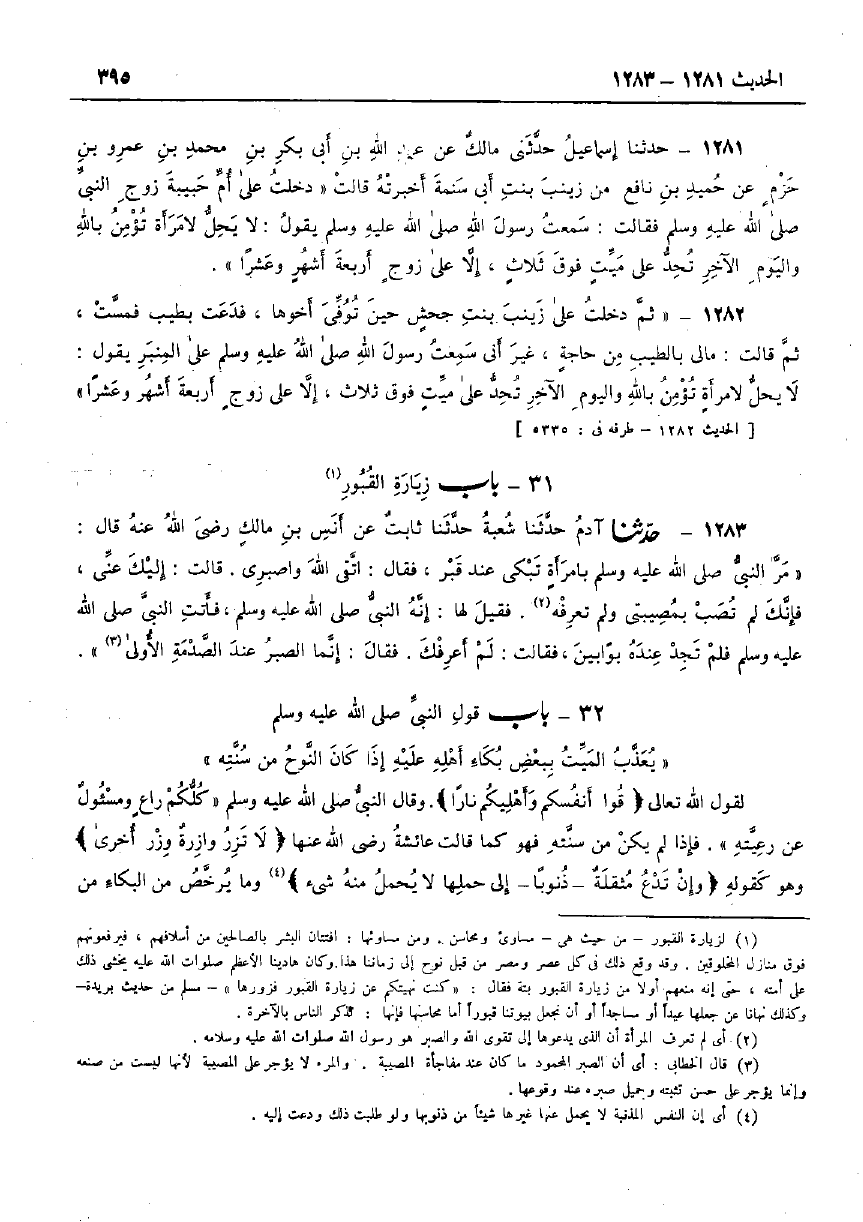 الحديث ١٢٨١ – ١٢٨٣
٣٩٥
١٢٨١ – حدثنا إسماعيلُ حدَّثَنى مالكٌ عن عبد اللهِ بنِ أبى بكرِ بنِ محمدِ بنِ عمرِو بنِ
حَزْمٍ عن حُميدِ بنِ نافع من زينبَ بنتِ أبى سَلمةَ أخبرتْهُ قالتْ « دخلتُ علىٰ أُمِّ حَبيبةَ زوجِ النبيِّ
صلىٰ الله عليهِ وسلم فقالت : سَمعتُ رسولَ اللهِ صلىٰ الله عليهِ وسلم يقولُ : لا يَحِلُّ لامَرَأة تُؤْمِنُ باللهِ
واليَومِ الآخِرِ تُحِدُّ على مَيِّتٍ فوقَ ثَلاثٍ ، إلَّا علىٰ زوجٍ أربعةَ أشهُرٍ وعَشرًا » .
١٢٨٢ – « ثمَّ دخلتُ علىٰ زَينبَ بنتِ جحشٍ حينَ تُوُفِّىَ أخوها ، فدَعَت بطيب فمسَّتْ ،
ثمَّ قالت : مالى بالطيبِ مِن حاجةٍ ، غيرَ أنى سَمِعتُ رسولَ اللهِ صلىٰ اللهُ عليهِ وسلم علىٰ المِنبَرِ يقول :
لَا يحلُّ لامرأةٍ تُؤْمِنُ باللهِ واليومِ الآخِرِ تُحِدُّ علىٰ ميِّتٍ فوق ثلاث ، إلَّا على زوجٍ أربعةَ أشهُر وعَشرًا»
[ الحديث ١٢٨٢ – طرفه فى : ٥٣٣٥ ]
٣١ – باب زِيَارَةِ القُبُورِ (١)
١٢٨٣ – حدّثنا آدمُ حدَّثَنا شُعبةُ حدَّثَنا ثابتٌ عن أنَسِ بنِ مالكٍ رضىَ اللهُ عنهُ قال :
« مَرَّ النبيُّ صلى الله عليه وسلم بامرَأةٍ تَبْكى عند قَبْر ، فقال : اتَّقى اللهَ واصبرِى . قالت : إليْكَ عنِّى ،
فإنَّكَ لم تُصَبْ بمُصِيبتى ولم تعرِفْه (٢) . فقيلَ لها : إنَّهُ النبيُّ صلى الله عليه وسلم ، فأتتِ النبيَّ صلى الله
عليه وسلم فلمْ تَجِدْ عِندَهُ بوّابينَ ، فقالت : لَمْ أعرِفْكَ . فقالَ : إنَّما الصبرُ عندَ الصَّدْمَةِ الأُولىٰ (٣) » .
٣٢ – باب قولِ النبيِّ صلى الله عليه وسلم
« يُعَذَّبُ المَيِّتُ بِبعْضِ بُكَاءِ أَهْلِهِ علَيْهِ إذَا كَانَ النَّوحُ من سُنَّتِه »
لقول الله تعالى ﴿ قُوا أَنفُسكم وَأَهْلِيكُم نارًا ﴾ . وقال النبيُّ صلى الله عليه وسلم « كلُّكُمْ راعٍ ومسْئُولٌ
عن رعِيَّتهِ » . فإذا لم يكنْ من سنَّتهِ فهو كما قالت عائشةُ رضى الله عنها ﴿ لَا تَزِرُ وازِرةٌ وِزْر أُخرىٰ ﴾
وهو كَقولهِ ﴿ وإنْ تَدْعُ مُثقلَةٌ – ذُنوبًا – إلى حملِها لا يُحملُ منهُ شىء ﴾ (٤) وما يُرخَّصُ من البكاءِ من
(١) لزيارة القبور – من حيث هى – مساوئ ومحاسن . ومن مساوئها : افتتان البشر بالصالحين من أسلافهم ، فيرفعونهم
فوق منازل المخلوقين . وقد وقع ذلك فى كل عصر ومصر من قبل نوح إلى زماننا هذا. وكان هادينا الأعظم صلوات الله عليه يخشى ذلك
على أمته ، حتى إنه منعهم أولا من زيارة القبور بتة فقال : «كنت نهيتكم عن زيارة القبور فزورها » – مسلم من حديث بريدة–
وكذلك نهانا عن جعلها عيداً أو مساجداً أو أن نجعل بيوتنا قبوراً أما محاسنها فإنها : تذكر الناس بالآخرة .
(٢) أى لم تعرف المرأة أن الذى يدعوها إلى تقوى الله والصبر هو رسول الله صلوات الله عليه وسلامه .
(٣) قال الخطابى : أى أن الصبر المحمود ما كان عند مفاجأة المصيبة . والمرء لا يؤجر على المصيبة لأنها ليست من صنعه
وإنما يؤجر على حسن تثبته وجميل صبره عند وقوعها .
(٤) أى إن النفس المذنبة لا يحمل عنها غيرها شيئاً من ذنوبها ولو طلبت ذلك ودعت إليه .